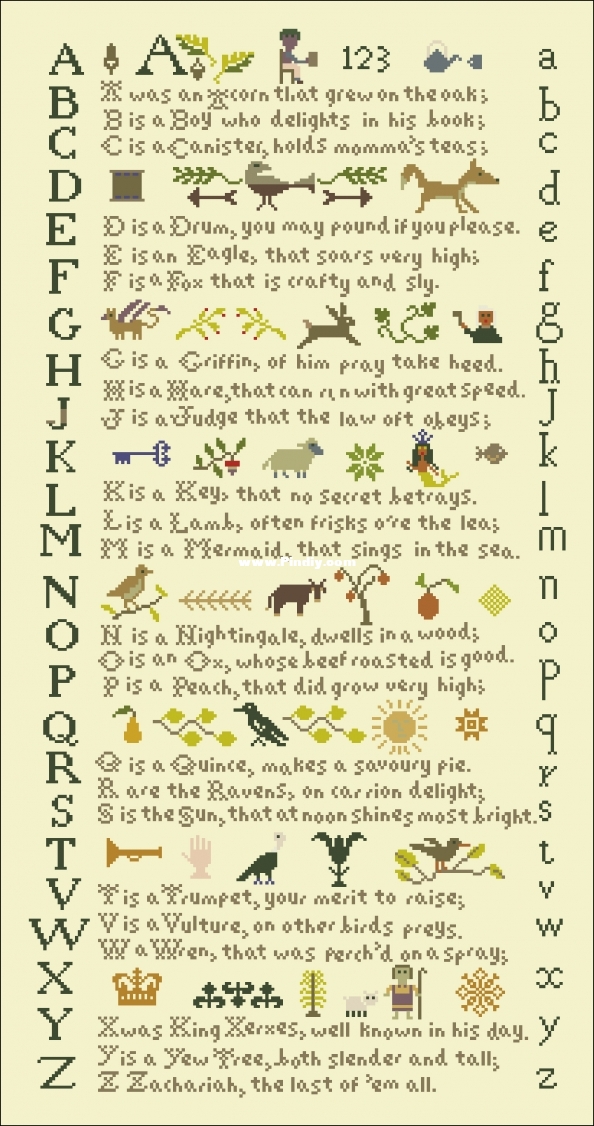 A A 123 a
B A was an Acorn that grew on the oak; b
B is a Boy who delights in his book;
C C is a Canister, holds momma's teas; c
D d
E D is a Drum, you may pound if you please. e
E is an Eagle, that soars very high;
F F is a Fox that is crafty and sly. f
G g
H G is a Griffin, of him pray take heed. h
H is a Hare, that can run with great speed.
J J is a Judge that the law oft obeys; j
K k
L K is a Key, that no secret betrays. l
L is a Lamb, often frisks o're the lea;
M M is a Mermaid, that sings in the sea. m
www.Pindiy.com
N n
O N is a Nightingale, dwells in a wood; o
O is an Ox, whose beef roasted is good.
P P is a Peach, that did grow very high; p
Q q
R Q is a Quince, makes a savoury pie. r
R are the Ravens, on carrion delight;
S S is the Sun, that at noon shines most bright. s
T t
V T is a Trumpet, your merit to raise; v
V is a Vulture, on other birds preys.
W W a Wren, that was perch'd on a spray; w
X x
Y X was King Xerxes, well known in his day. y
Y is a Yew Tree, both slender and tall;
Z Z Zachariah, the last of 'em all. z